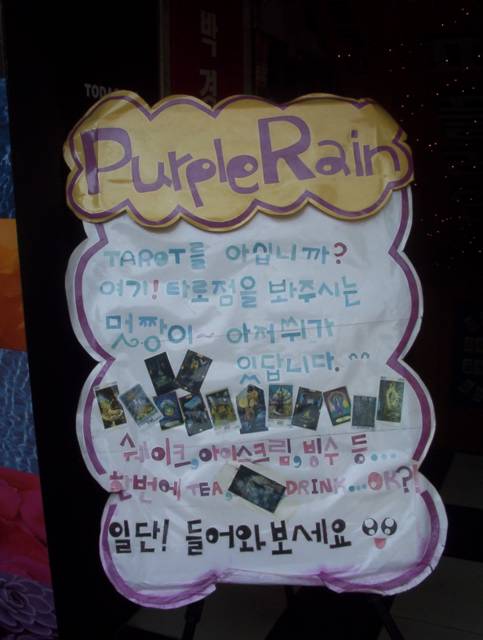 TODA
박
PurpleRain
TAROT를 아십니까?
여기! 타로점을 봐주시는
멋짱이~ 아저씨가
있답니다. ^^
쉐이크, 아이스크림, 빙수 등...
한번에 TEA, DRINK...OK?!
일단! 들어와보세요